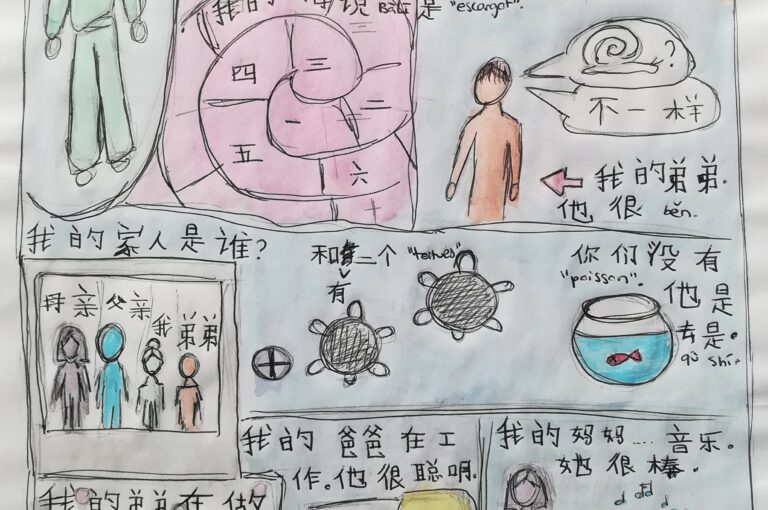 我的 说 是 "escargot".
四 三
一 二
五 六
?
不一样
我的弟弟.
他很 bèn.
我的家人是谁?
母亲 父亲 我 弟弟
和 二个
有
你们没有
"poisson". 他是
去是。
qù shì.
我的爸爸在工
作.他很聪明.
我的妈妈....音乐。
她很棒.
我的弟弟在做